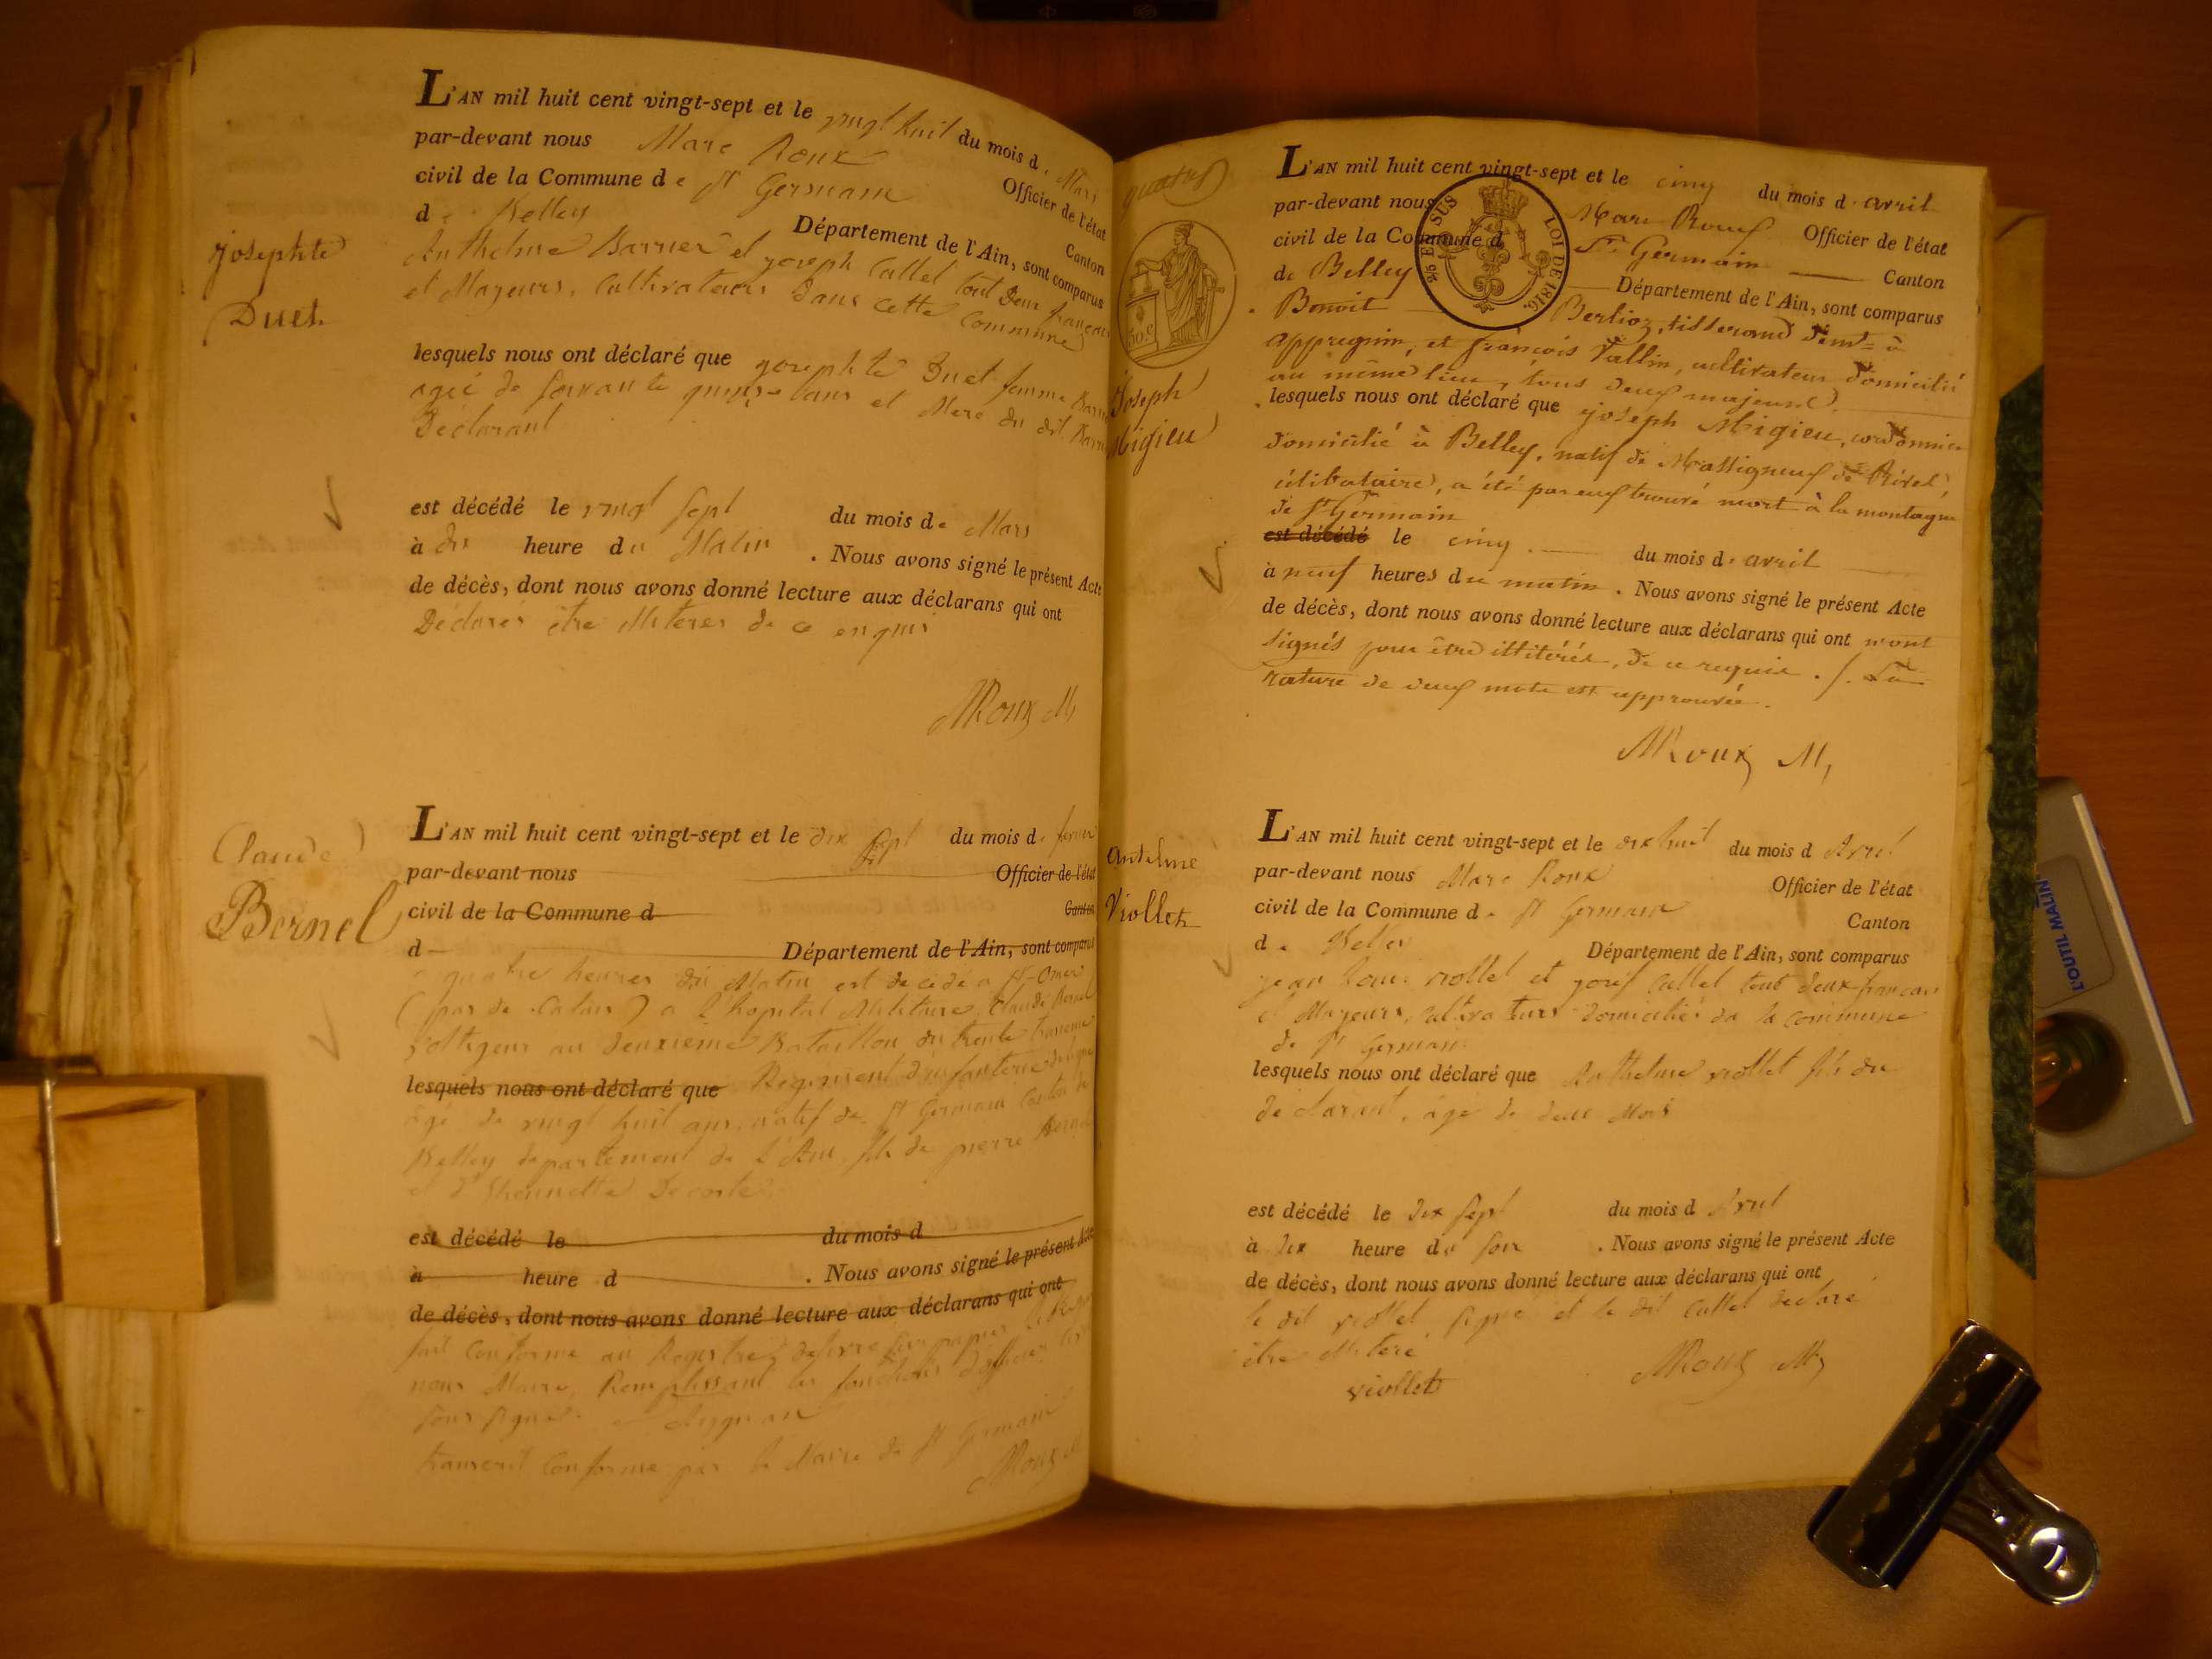 L'AN mil huit cent vingt-sept et le vingt huit du mois de Mars
par-devant nous Marc Roux Officier de l'état
civil de la Commune de St Germain Canton
de Belley Département de l'Ain, sont comparus
Anthelme Barrier et joseph Callet tout deux français
et Mageurs, Cultivateurs dans cette Commune
josephte
Duet
lesquels nous ont déclaré que josephte Duet femme
agée de soixante quinze ans et Mere du dit
Déclarant
est décédé le vingt sept du mois de Mars
à dix heure du Matin . Nous avons signé le présent Acte
de décès, dont nous avons donné lecture aux déclarans qui ont
Déclarés être illiteres de ce enquis
MRoux M,
Claude
Bernel
L'AN mil huit cent vingt-sept et le dix sept du mois de
par-devant nous Officier de l'état
civil de la Commune d Canton
d Département de l'Ain, sont comparus
a quatre heures du Matin est décédé a St-Omer
(pas de Calais) a l'hopital Militaire, Claude Bernel
voltigeur au deuxieme Bataillon du trente troisieme
lesquels nous ont déclaré que Regiment d'infanterie de ligne
âgé de vingt huit ans, natif de St Germain Canton de
Belley departement de l'Ain fils de pierre Bernel
et d'
est décédé le du mois d
à heure d . Nous avons signé le présent Acte
de décès, dont nous avons donné lecture aux déclarans qui ont
fait conforme au Registre
nous Maire, Remplissant les fonctions d'officier
sous signé
transcrit Conforme par le Maire de St Germain
MRoux M
Joseph
Migieu
50 c
26 EN SUS
LOI DE 1816.
L'AN mil huit cent vingt-sept et le cinq du mois d'avril
par-devant nous Marc Roux Officier de l'état
civil de la Commune d St Germain Canton
de Belley Département de l'Ain, sont comparus
Benoit Berlioz, tisserand demt à
appregnin, et françois Vallin, cultivateur domicilié
au même lieu, tous deux majeurs.
lesquels nous ont déclaré que joseph Migieu, cordonnier
domicilié à Belley, natif de Massigneux de Rives,
célibataire, a été par eux trouvé mort à la montagne
de St Germain
est décédé le cinq du mois d'avril
à neuf heures du matin . Nous avons signé le présent Acte
de décès, dont nous avons donné lecture aux déclarans qui ont n'ont
signés pour être illitérés, de ce requis ./. La
rature de deux mots est approuvée.
MRoux M,
antelme
Viollet
L'AN mil huit cent vingt-sept et le dix huit du mois d Avril
par-devant nous Marc Roux Officier de l'état
civil de la Commune de St Germain Canton
de Belley Département de l'Ain, sont comparus
jean louis viollet et josef Callet tout deux francais
et Mageurs, cultivateurs domiciliés de la commune
de St Germain
lesquels nous ont déclaré que Anthelme viollet fils du
déclarant, âgé de deux Mois
est décédé le dix sept du mois d Avril
à dix heure du soir . Nous avons signé le présent Acte
de décès, dont nous avons donné lecture aux déclarans qui ont
le dit viollet signé et le dit Callet declaré
être illiteré
viollet
MRoux M,
L'OUTIL MALIN